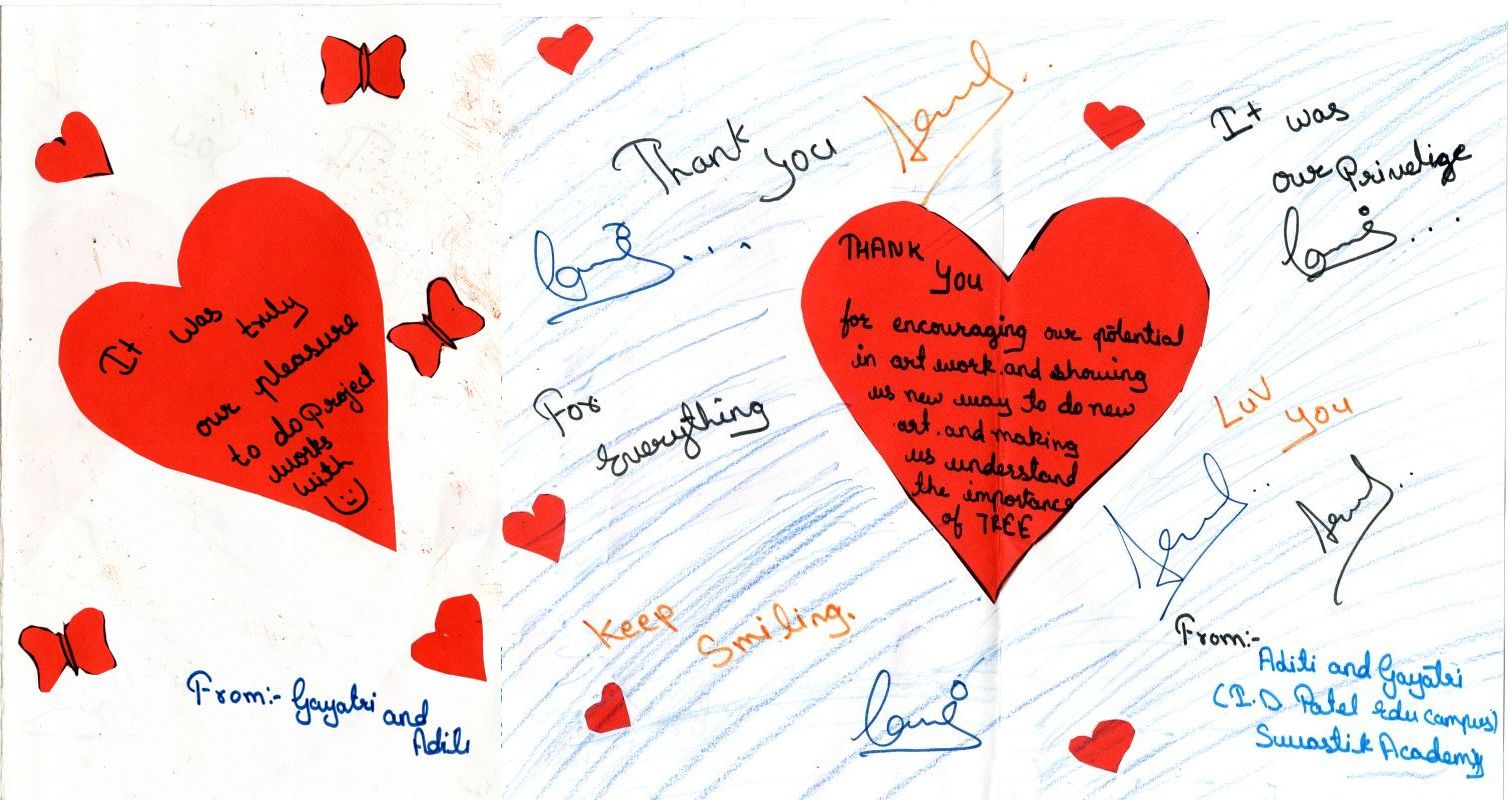 It was
truly
our pleasure
to do Project
works
with
From:- Gayatri and
Aditi
Thank
you
For
Everything
Keep
Smiling.
THANK
YOU
for encouraging our potential
in art work and showing
us new way to do new
art. and making
us understand
the importance
of TREE
It was
our Privelige
Luv
You
From:-
Aditi and Gayatri
(I.D. Patel Edu campus)
Swastik Academy